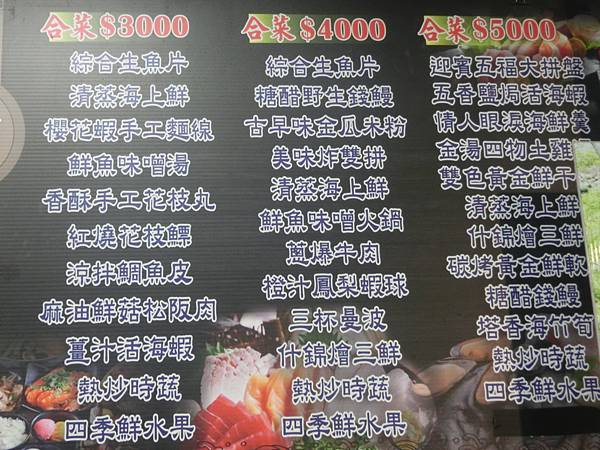 合菜$3000
綜合生魚片
清蒸海上鮮
櫻花蝦手工麵線
鮮魚味噌湯
香酥手工花枝丸
紅燒花枝鰾
涼拌鯛魚皮
麻油鮮菇松阪肉
薑汁活海蝦
熱炒時蔬
四季鮮水果
合菜$4000
綜合生魚片
糖醋野生錢鰻
古早味金瓜米粉
美味炸雙拼
清蒸海上鮮
鮮魚味噌火鍋
蔥爆牛肉
橙汁鳳梨蝦球
三杯曼波
什錦燴三鮮
熱炒時蔬
四季鮮水果
合菜$5000
迎賓五福大拼盤
五香鹽焗活海蝦
情人眼淚海鮮羹
金湯四物土雞
雙色黃金鮮干
清蒸海上鮮
什錦燴三鮮
碳烤黃金鮮軟
糖醋錢鰻
塔香海竹筍
熱炒時蔬
四季鮮水果